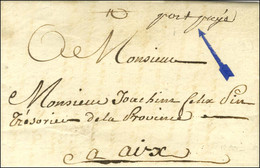 port payé
A Monsieur
Monsieur Joachim felix Pin
Trésorier de la Province
a aix